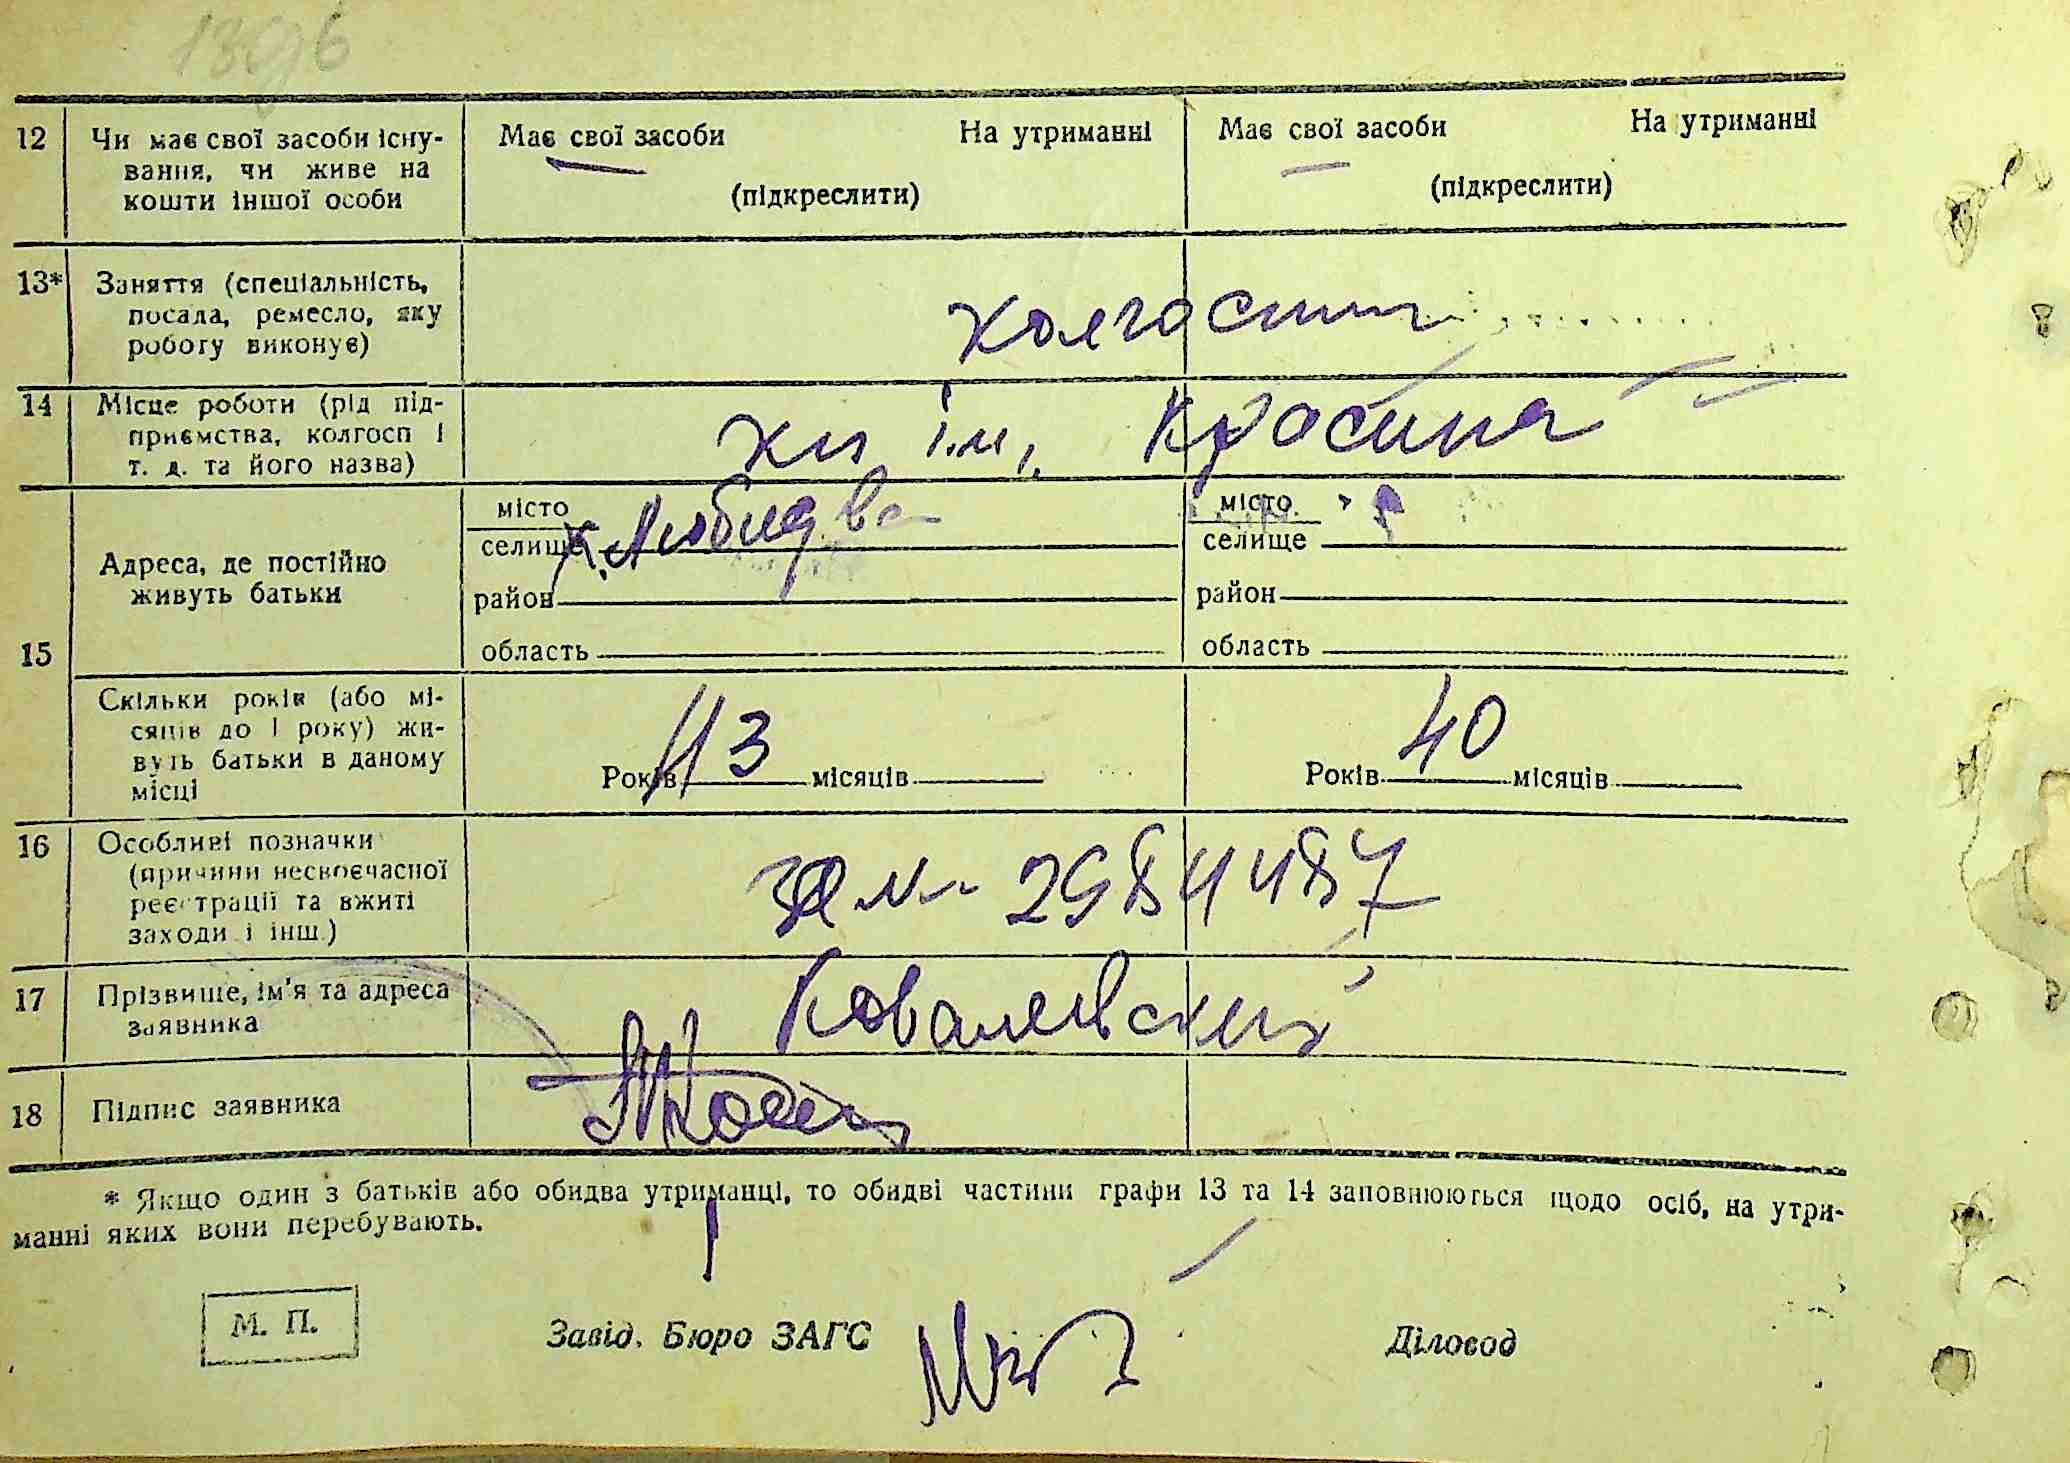 1396
12 Чи має свої засоби існу- Має свої засоби На утриманні Має свої засоби На утриманні
вання, чи живе на (підкреслити) (підкреслити)
кошти іншої особи
13* Заняття (спеціальність,
посада, ремесло, яку
роботу виконує)
колгоспник
14 Місце роботи (рід під-
приємства, колгосп і
т. д. та його назва)
кг ім. Красіна
15 Адреса, де постійно
живуть батьки
місто місто
селище селище
район район
область область
Скільки років (або мі-
сяців до 1 року) жи-
вуть батьки в даному
місці
Років 43 місяців Років 40 місяців
16 Особливі позначки
(причини несвоєчасної
реєстрації та вжиті
заходи і інш.)
17 Прізвище, ім'я та адреса
заявника
Ковалевский
18 Підпис заявника
* Якщо один з батьків або обидва утриманці, то обидві частини графи 13 та 14 заповнюються щодо осіб, на утри-
манні яких вони перебувають.
М. П. Завід. Бюро ЗАГС Діловод